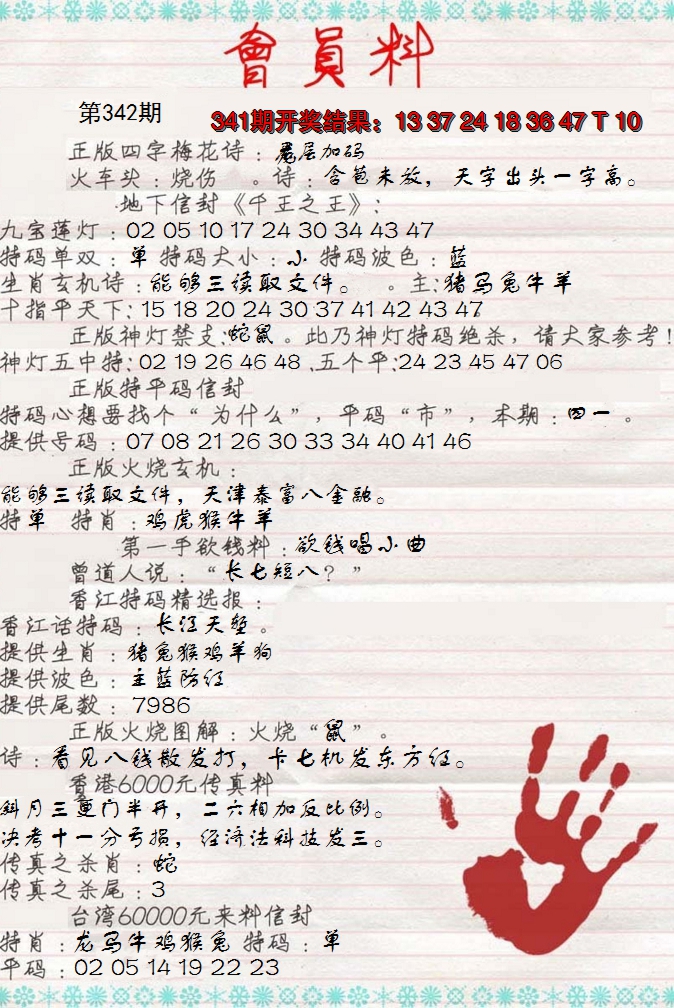 會員料
第342期
341期开奖结果：13 37 24 18 36 47 T 10
正版四字梅花诗：层层加码
火车头：烧伤 。诗：含苞未放，天字出头一字高。
地下信封《千王之王》：
九宝莲灯：02 05 10 17 24 30 34 43 47
特码单双：单 特码大小：小 特码波色：蓝
生肖玄机诗：能够三读取文件。 。主：猪马兔牛羊
十指平天下：15 18 20 24 30 37 41 42 43 47
正版神灯禁支：蛇鼠。此乃神灯特码绝杀，请大家参考！
神灯五中特：02 19 26 46 48 .五个平：24 23 45 47 06
正版特平码信封
特码心想要找个“为什么”，平码“市”，本期：四一 。
提供号码：07 08 21 26 30 33 34 40 41 46
正版火烧玄机：
能够三读取文件，天津泰富八金融。
特单 特肖：鸡虎猴牛羊
第一手欲钱料：欲钱唱小曲
曾道人说：“长七短八？”
香江特码精选报：
香江话特码：长江天堑。
提供生肖：猪兔猴鸡羊狗
提供波色：主蓝防红
提供尾数：7986
正版火烧图解：火烧“鼠”。
诗：看见八钱散发打，卡七机发东方红。
香港6000元传真料
斜月三更门半开，二六相加反比例。
决考十一分亏损，经济法科技发三。
传真之杀肖：蛇
传真之杀尾：3
台湾60000元来料信封
特肖：龙马牛鸡猴兔 特码：单
平码：02 05 14 19 22 23